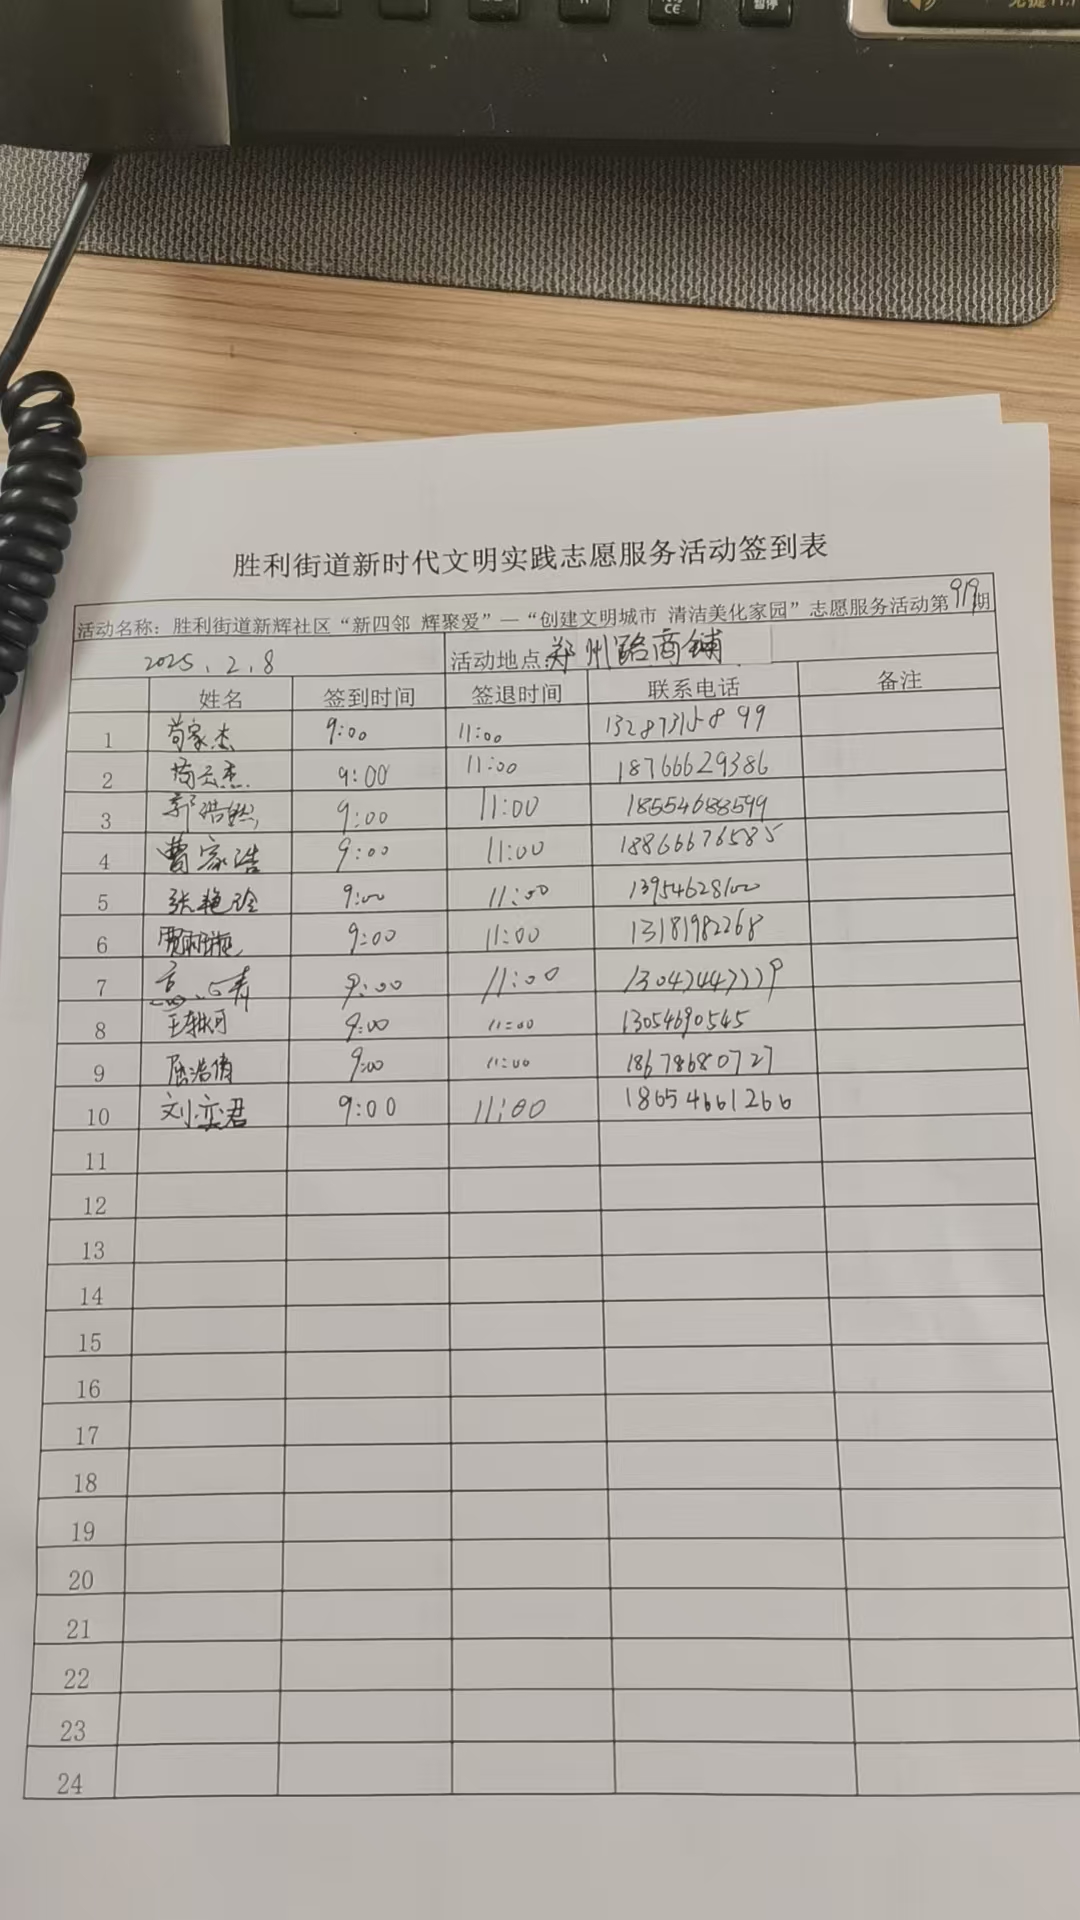 CE
暂停
胜利街道新时代文明实践志愿服务活动签到表
活动名称：胜利街道新辉社区“新四邻 辉聚爱”—“创建文明城市 清洁美化家园”志愿服务活动第919期
2025.2.8 活动地点：郑州路商铺
姓名 签到时间 签退时间 联系电话 备注
1 苟家杰 9:00 11:00 13287315899
2 杰 9:00 11:00 18766629386
3 郭浩然 9:00 11:00 18554688599
4 曹家浩 9:00 11:00 18866676585
5 张艳玲 9:00 11:00 13954628100
6 9:00 11:00 13181982268
7 9:00 11:00
8 王 9:00 11:00 13054690545
9 屈浩倩 9:00 11:00 18678680727
10 刘奕君 9:00 11:00 18654661266
11
12
13
14
15
16
17
18
19
20
21
22
23
24